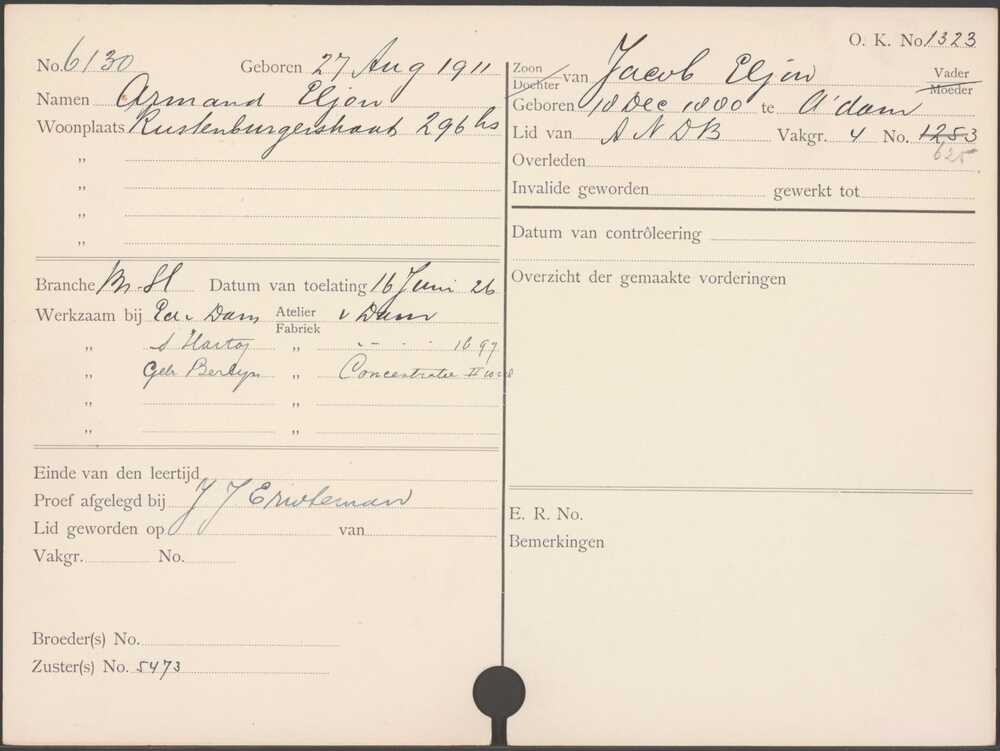 No. 6130 Geboren 27 Aug 1911
Namen Armand Eljon
Woonplaats Rustenburgerstraat 296 hs
„
„
„
„
Branche Br. Sl Datum van toelating 16 Juni 26
Werkzaam bij Ed v Dam Atelier Fabriek v Dam
„ S Hartog „ 1697
„ Gebr Berlyn „ Concentratie II
„ „
„ „
Einde van den leertijd
Proef afgelegd bij J J Erwteman
Lid geworden op van
Vakgr. No.
Broeder(s) No.
Zuster(s) No. 5473
O. K. No 1323
Zoon Dochter van Jacob Eljon Vader Moeder
Geboren 18 Dec 1880 te A'dam
Lid van A N D B Vakgr. 4 No. 1253
625
Overleden
Invalide geworden gewerkt tot
Datum van contrôleering
Overzicht der gemaakte vorderingen
E. R. No.
Bemerkingen